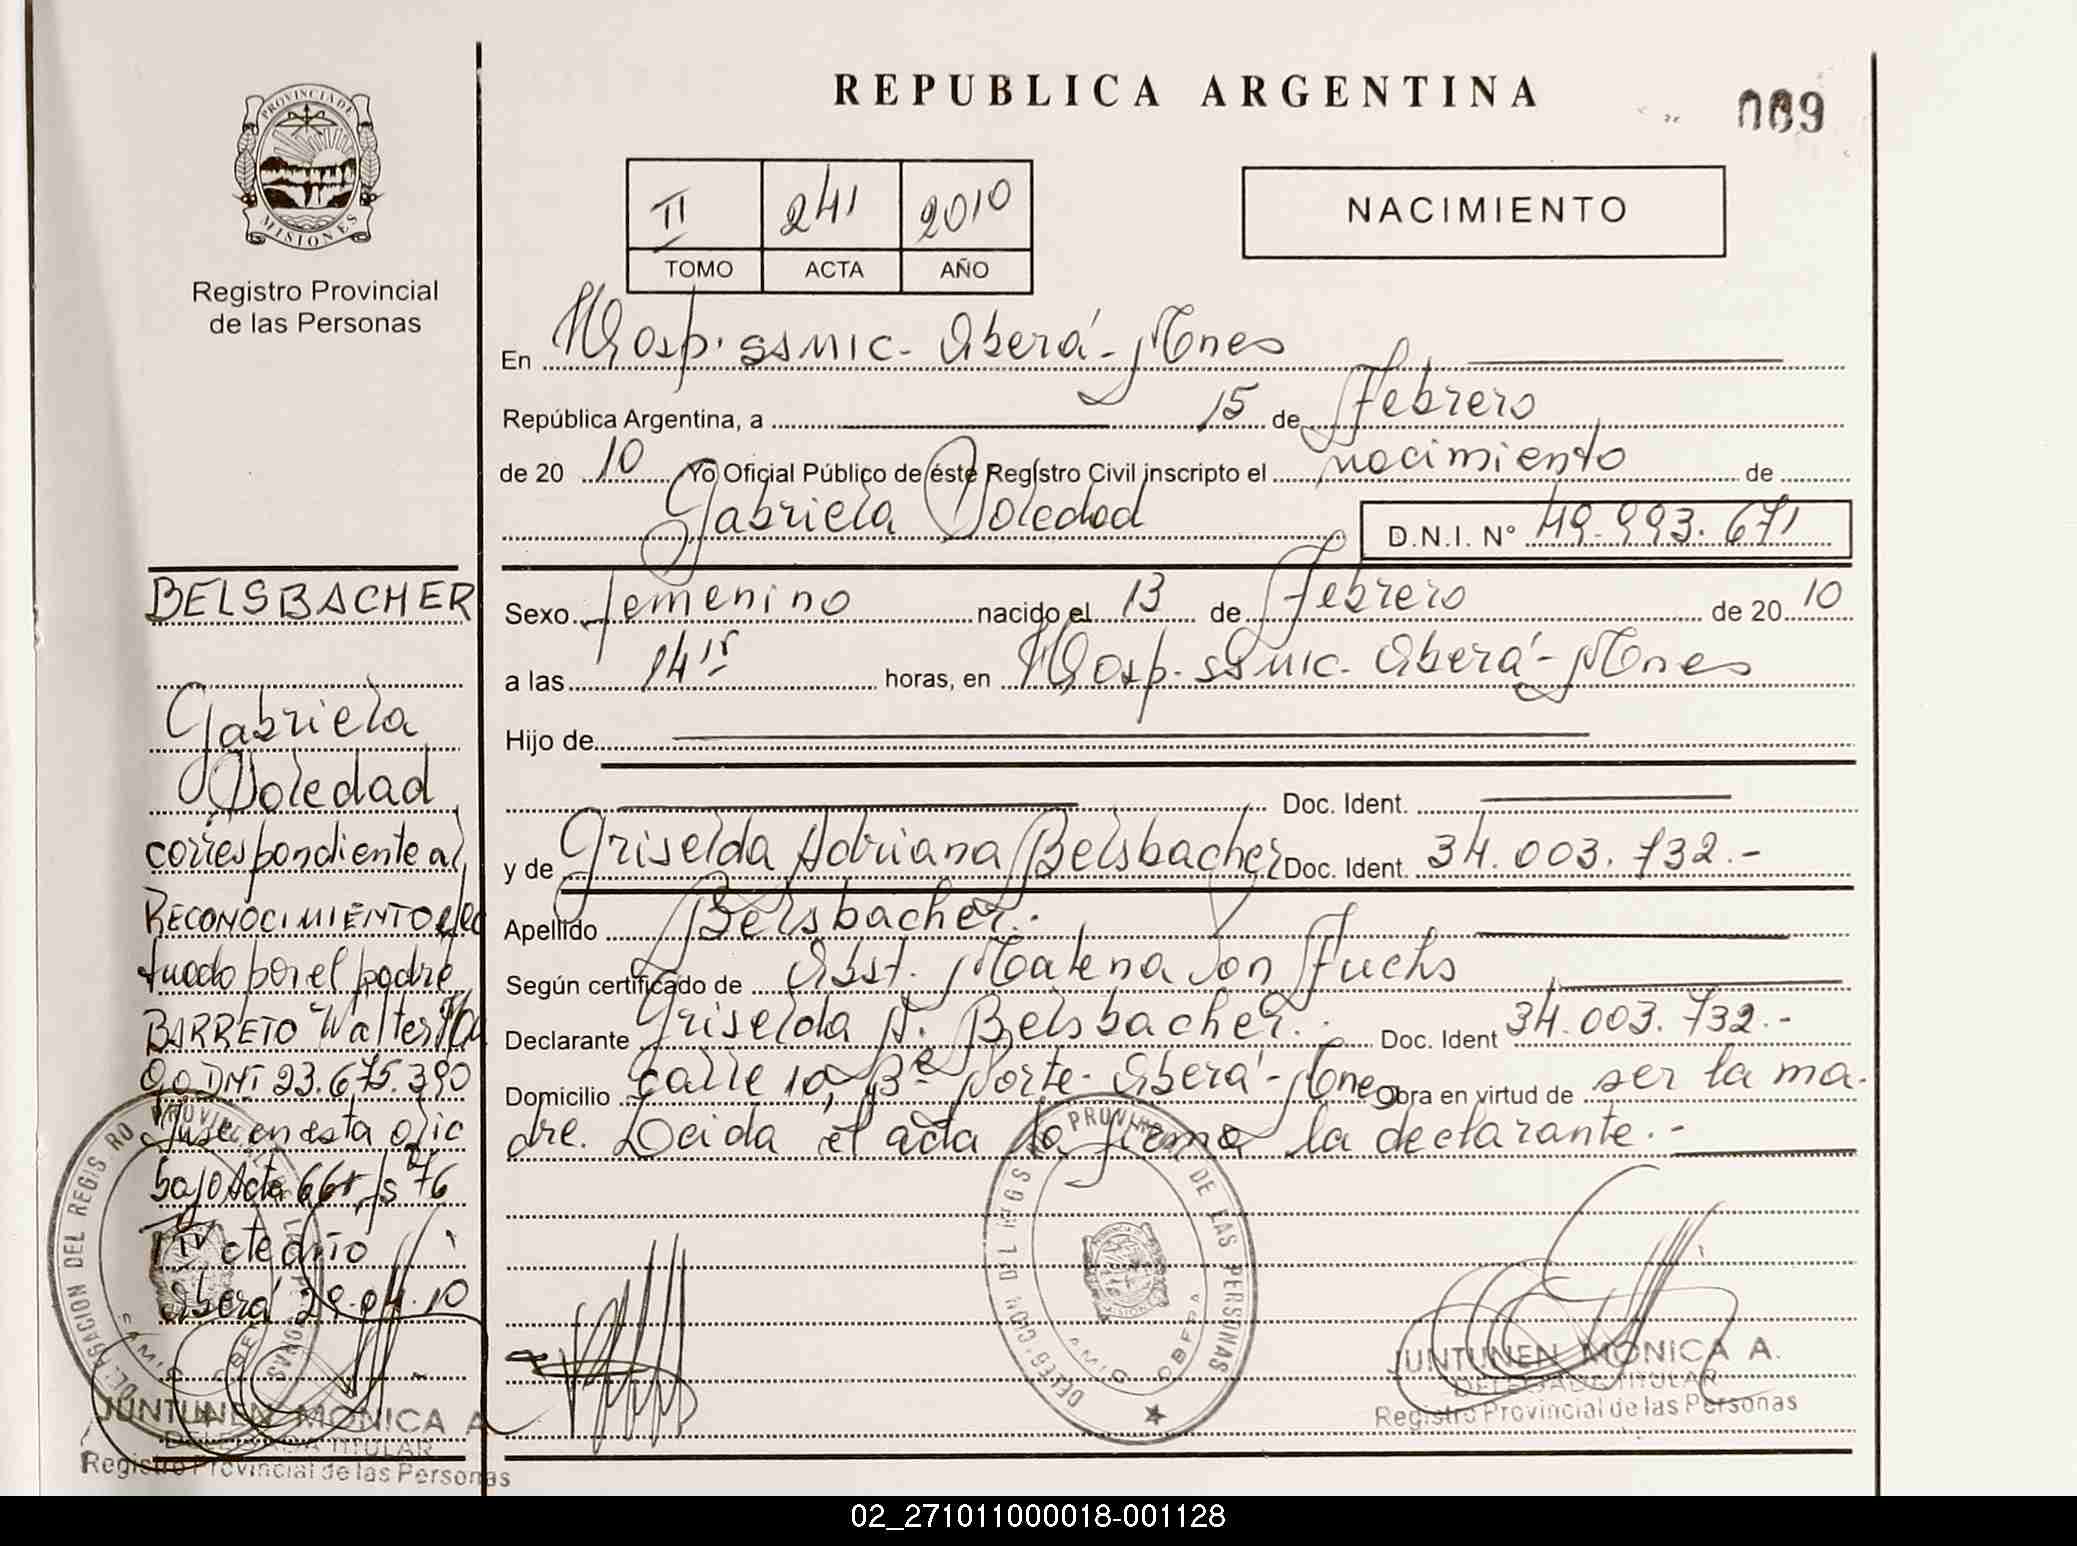 REPUBLICA ARGENTINA
009
PROVINCIA DE
MISIONES
Registro Provincial
de las Personas
II 241 2010
TOMO ACTA AÑO
NACIMIENTO
En Hosp. SSMIC - Oberá - Mnes
República Argentina, a 15 de Febrero
de 20 10 Yo Oficial Público de éste Registro Civil inscripto el nacimiento de
Gabriela Soledad D.N.I. N° 49.993.671
Sexo femenino nacido el 13 de Febrero de 20 10
a las 14 15 horas, en Hosp. SSMIC - Oberá - Mnes
Hijo de
Doc. Ident.
y de Griselda Adriana Belsbacher Doc. Ident. 34.003.732.-
Apellido Belsbacher.
Según certificado de Obst. Malena Von Fuchs
Declarante Griselda A. Belsbacher. Doc. Ident 34.003.732.-
Domicilio calle 10, Bº Norte - Oberá - Mnes Obra en virtud de ser la ma-
dre. Leida el acta la firma la declarante.-
BELSBACHER
Gabriela
Soledad
correspondiente al
RECONOCIMIENTO efec
tuado por el padre
BARRETO Walter Hu
go DNI 23.675.390
Inse. en esta ofic
bajo Acta 661 fs 76
T IV cte año
Oberá 29.04.10
DELEGACION DEL REGISTRO PROVINCIAL DE LAS PERSONAS
SAMIC OBERA
JUNTUNEN MONICA A
DELEGADA TITULAR
Registro Provincial de las Personas
PROVINCIAL DE LAS PERSONAS
SAMIC OBERA
JUNTUNEN MONICA A.
DELEGADA TITULAR
Registro Provincial de las Personas
02_271011000018-001128